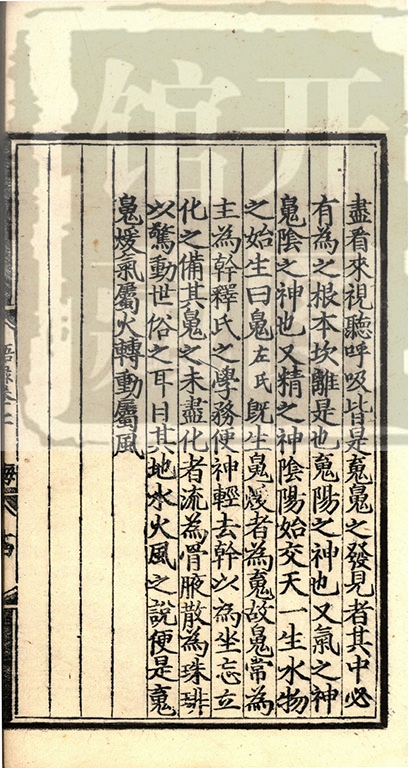 盡看來視聽呼吸皆是䰟䰠之發見者其中必
有為之根本坎離是也䰟陽之神也又氣之神
䰠陰之神也又精之神陰陽始交天一生水物
之始生曰䰠左氏既生䰠煖者為䰟故䰠常為
主為幹釋氏之學務使神輕去幹以為坐忘立
化之備其䰠之未盡化者流為骨腋散為珠琲
以驚動世俗之耳目其地水火風之說便是䰟
䰠煖氣屬火轉動屬風
語錄卷上
开
馆